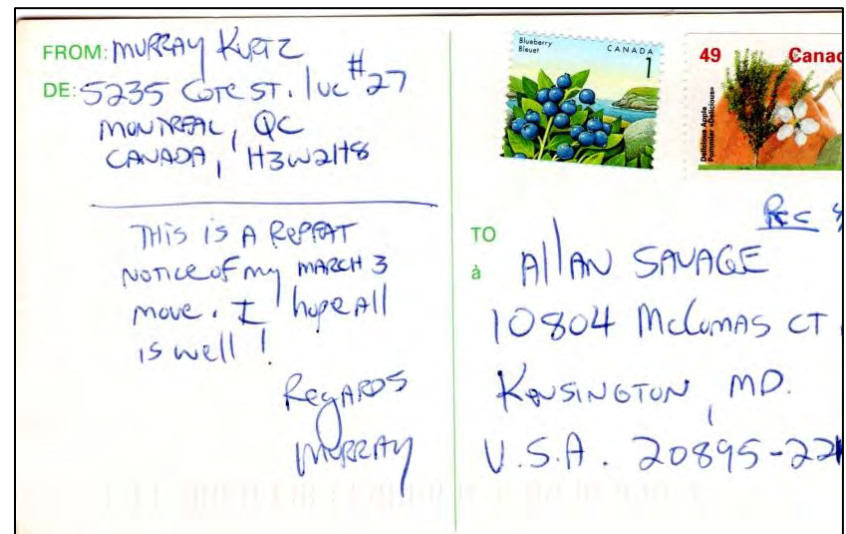 FROM: MURRAY KURTZ
DE: 5235 COTE ST. LUC #27
MONTREAL, QC
CANADA, H3W2H8
THIS IS A REPEAT
NOTICE OF MY MARCH 3
MOVE. I HOPE ALL
IS WELL!
REGARDS
MURRAY
Blueberry
Bleuet
CANADA
1
49 Canad
Delicious Apple
Pommier «Delicious»
TO
à
ALLAN SAVAGE
10804 McComas CT
KENSINGTON, MD.
U.S.A. 20895-22